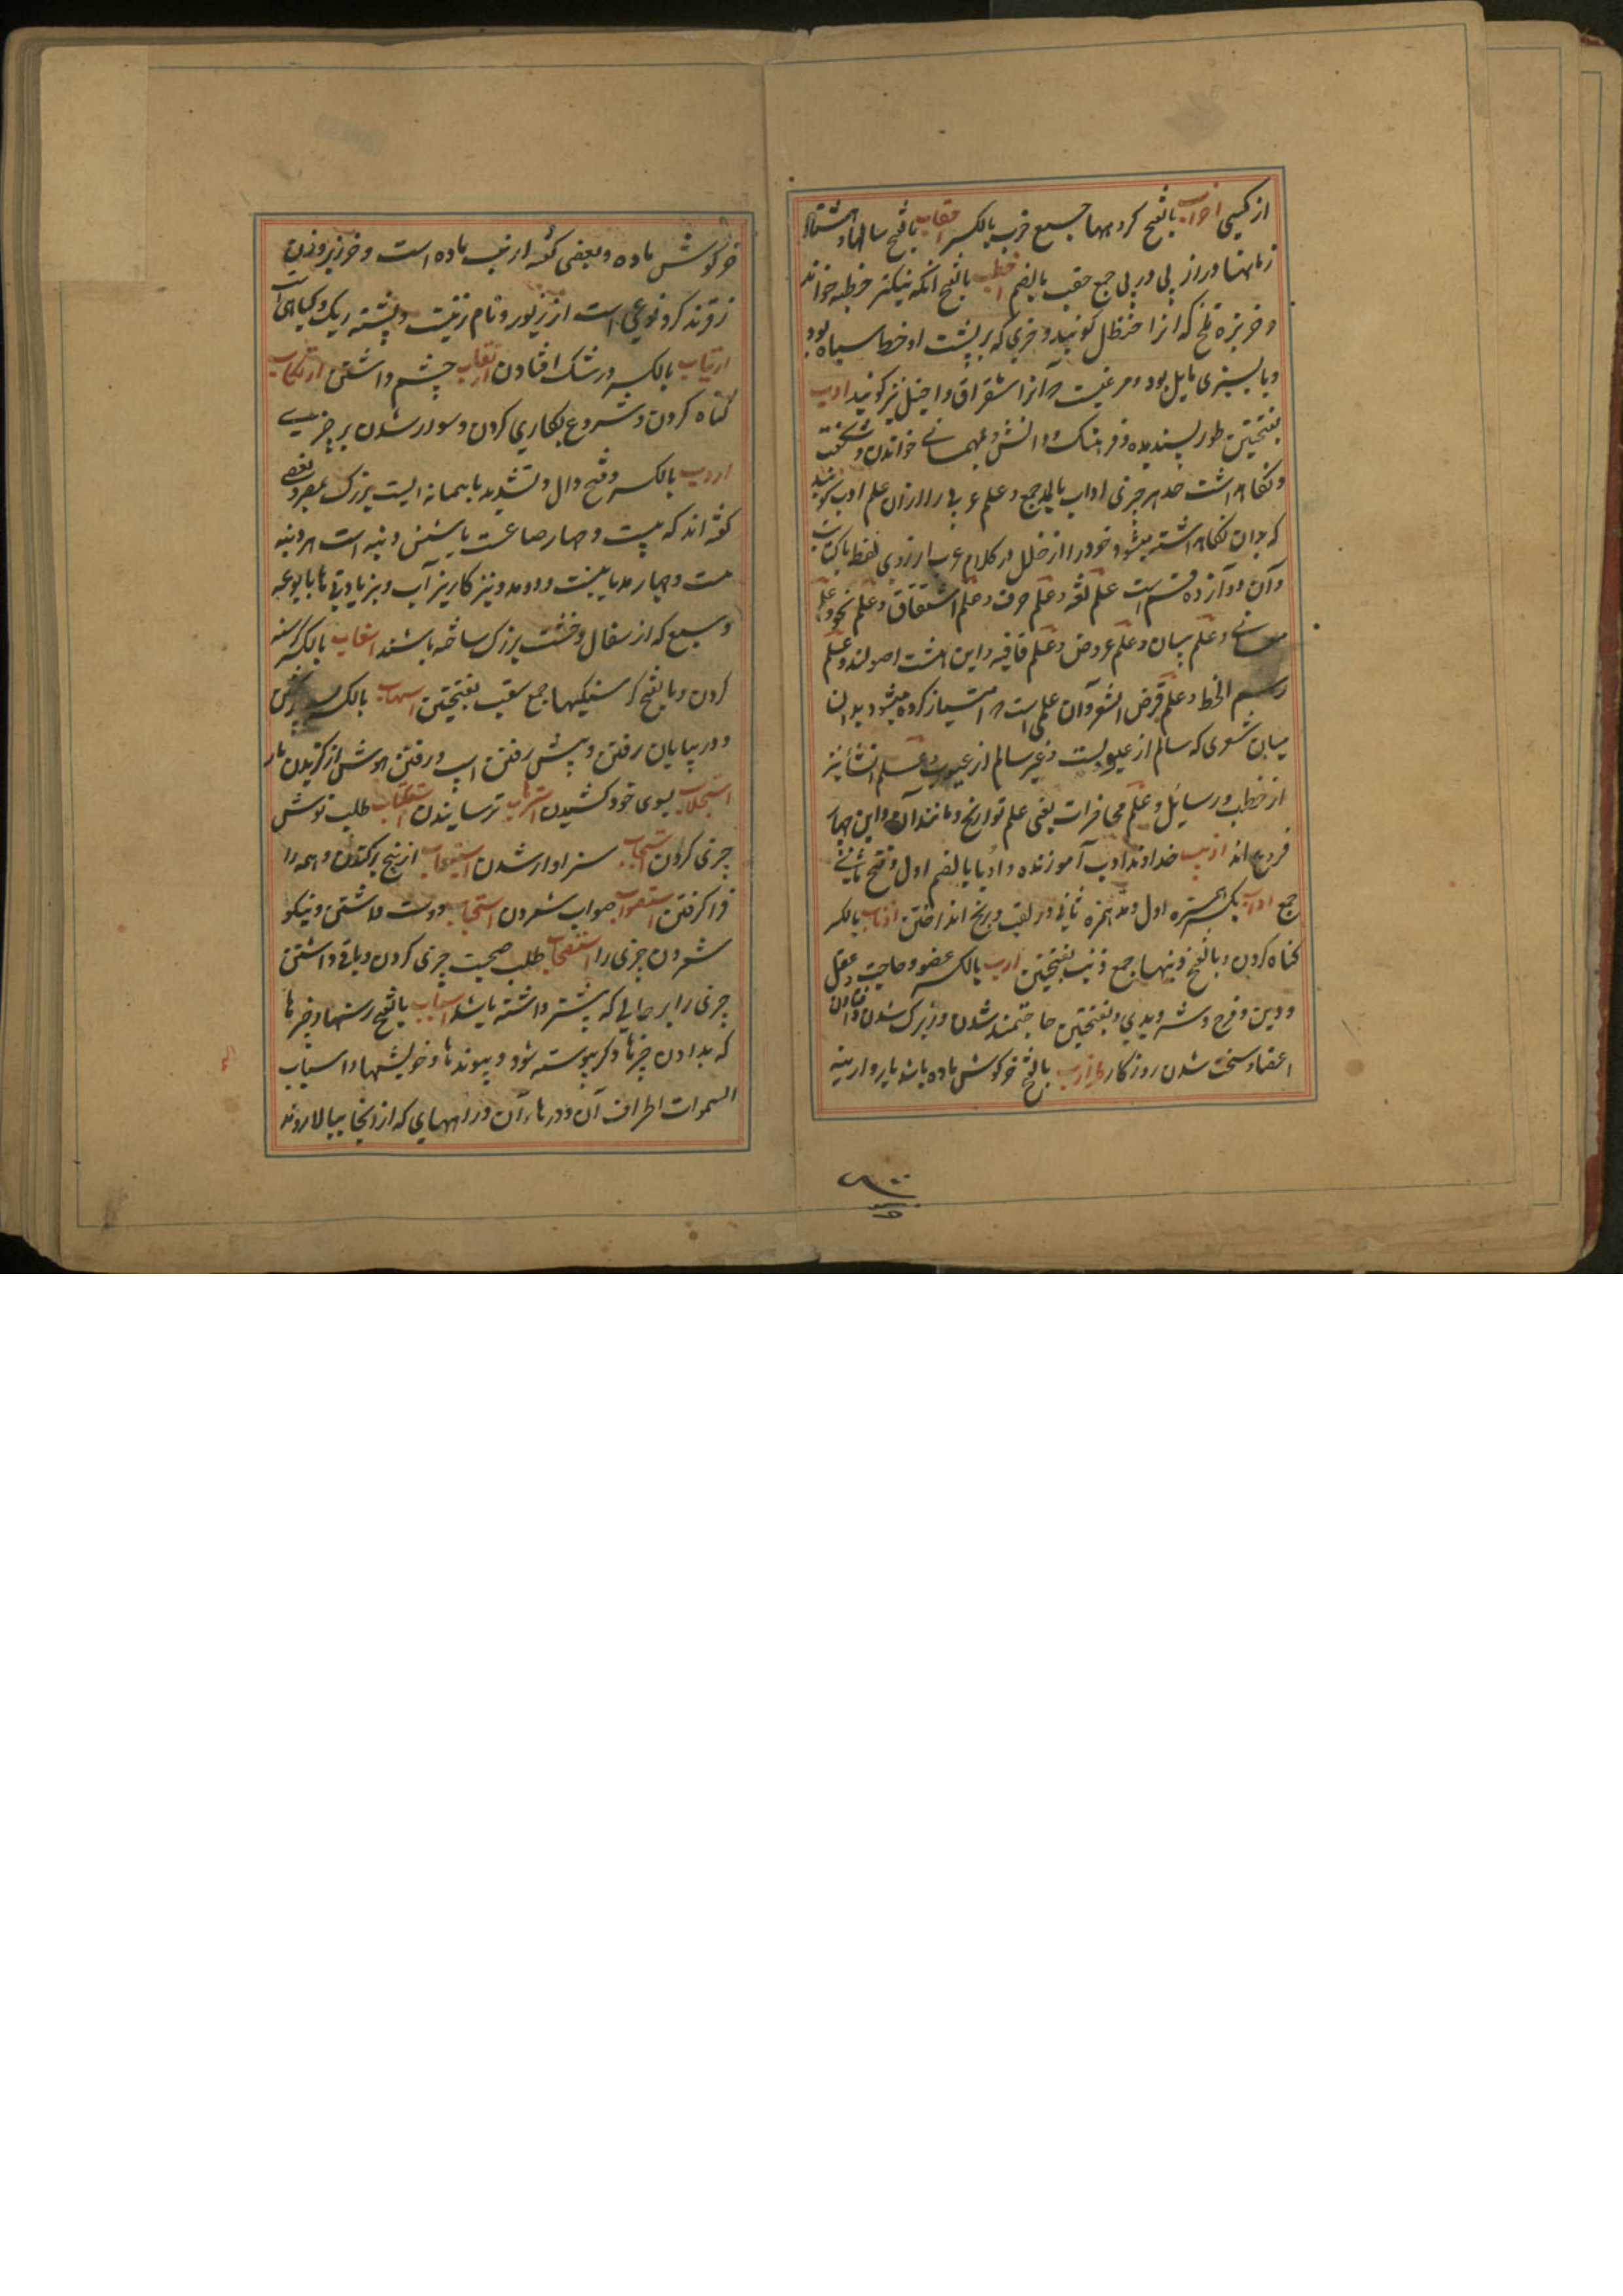 از کسی احزاب بالفتح کروهها جمع حزب بالکسر احقاب بالفتح سالها و هشتاد
زمانها دراز پی در پی جمع حقب بالضم اخطب بالفتح آنکه نیکتر خطبه خواند
و خربزه تلخ که انرا حنظل کویند و خری که بر پشت او خط سیاه بود
و یا بسبزی مایل بود و مرغیست که آنرا شقراق و اخیل نیز کویند ادب
بفتحتین طور پسندیده و فرهنک و دانش و بمهمانی خواندن و شکفت
و نکاهداشت حد هر چیزی اداب بالمد جمع و علم عربی را ازان علم ادب کویند
که بدان نکاهداشته میشود خود را از خلل در کلام عرب از روی لفظ یا کتابت
و آن دوازده قسم است علم لغه و علم صرف و علم اشتقاق و علم نحو و علم
معانی و علم بیان و علم عروض و علم قافیه و این هشت اصولند و علم
رسم الخط و علم قرض الشعر و آن علمی است که امتیاز کرده میشود بدان
میان شعری که سالم از عیوبست و غیر سالم از عیوب و علم انشا نثر
از خطب و رسایل و علم محاضرات یعنی علم تواریخ و مانند آن و این چهار
فروع اند ادیب خداوند ادب آموزنده و ادبا بالضم اول و فتح ثانی
جمع اداب بکسر همزه اول و مد همزه ثانی در تعب و رنج انداختن اذناب بالکسر
کناه کردن و بالفتح دنبها جمع ذنب بفتحتین ارب بالکسر عضو و حاجت و عقل
و دین و فرج و شر و بدی و بفتحتین حاجتمند شدن و زیرک شدن و افتادن
اعضا و سخت شدن روزکار ارنب بالفتح خرکوش ماده باشد یا نر و ارنبه
خرکوش ماده و بعضی کفته ارنب ماده است و خرز بر وزن
زفر نر کرد و نوعی است از زیور و نام زنیست و پشته ریک و کیاهی است
ارتیاب بالکسر در شک افتادن ارتقاب چشم داشتن ارتکاب
کناه کردن و شروع بکاری کردن و سوار شدن بر چیزی
اردب بالکسر و فتح دال و تشدید با پیمانه ایست بزرک بمصر و بعضی
کفته اند که بیست و چهار صاعست
و نیز کاریز آب و بزیادتی ها بالوعه
وسیع که از سفال و خشت بزرک ساخته باشند اسغاب بالکسر کرسنه
کردن و بالفتح کرسنکیها جمع سغب بفتحتین اسهاب بالکسر
و در بیابان رفتن و پیش رفتن اسپ و رفتن هوش از کزیدن مار
استجلاب بسوی خود کشیدن استرهاب ترسانیدن استکتاب طلب نوشتن
چیزی کردن استیجاب سزاوار شدن استیعاب از بیخ برکندن و همه را
فرا کرفتن استصواب صواب شمردن استحباب دوست داشتن و نیکو
شمردن چیزی را استصحاب طلب صحبت چیزی کردن و باقی داشتن
چیزی را بر حالی که پیشتر داشته باشد اسباب بالفتح رسنها و چیزها
که بدان چیزها دیکر پیوسته شود و پیوندها و خویشیها و اسباب
السموات اطراف آن و درهاء آن و راههای که از انجا ببالا روند